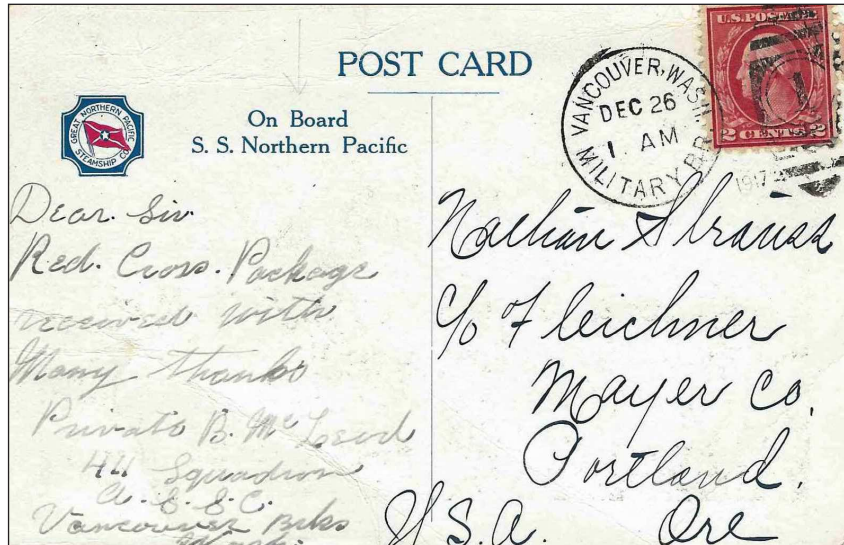 POST CARD
GREAT NORTHERN PACIFIC
STEAMSHIP CO.
On Board
S. S. Northern Pacific
VANCOUVER, WASH.
DEC 26
1 AM
MILITARY BR.
1917
U.S. POSTAGE
2 CENTS 2
Dear. Sir.
Red. Cross. Package
received with
Many thanks
Private B. Mc Leod
44 Squadron
A. S. S. C.
Vancouver Brks
Wash.
Nathan Strauss
c/o Fleichner
Mayer Co.
Portland.
U.S.A. Ore